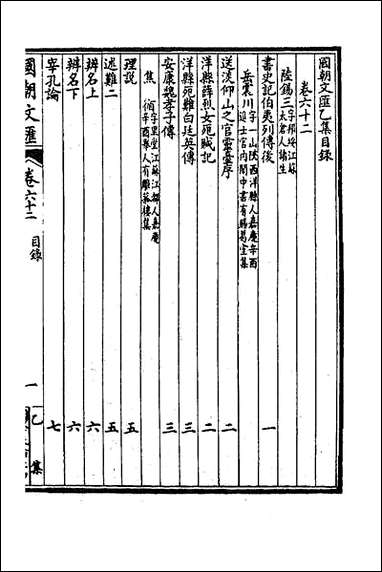 國朝文匯乙集目錄
卷六十二
陸錫三 太倉人諸生
書史記伯夷列傳後 一
岳震川 字一山陝西洋縣人嘉慶辛酉進士官內閣中書有賜葛堂集
送淡仰山之官靈臺序 二
洋縣薛烈女冤賊記 二
洋縣殉難白珽英傳 三
安康魏孝子傳 三
焦循 字里堂江蘇江都人嘉慶辛酉舉人有雕菰樓集
理說 五
述難二 五
辨名上 六
辨名下 六
宰孔論 七
國朝文匯 卷六十二 目錄 一 乙集